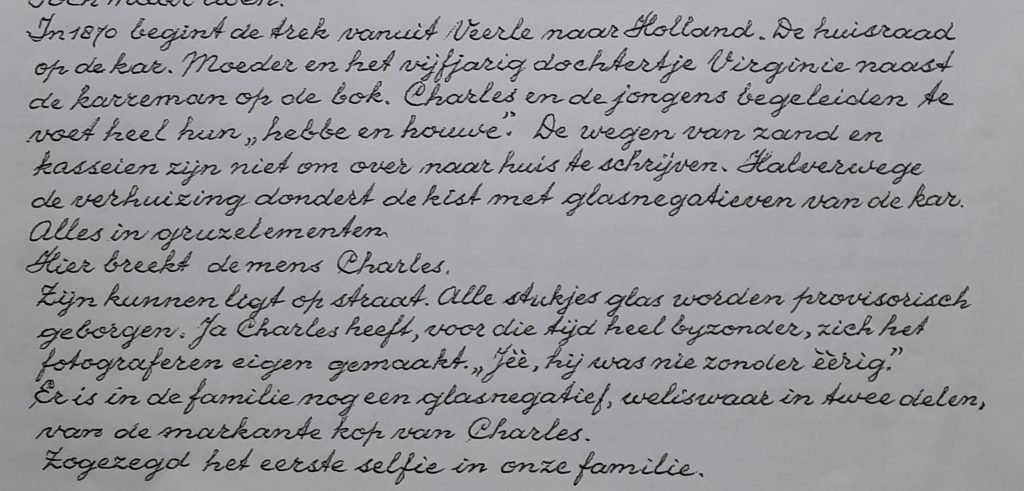 Toch maar doen.
In 1870 begint de trek vanuit Veerle naar Holland. De huisraad
op de kar. Moeder en het vijfjarig dochtertje Virginie naast
de karreman op de bok. Charles en de jongens begeleiden te
voet heel hun „hebbe en houwe”. De wegen van zand en
kasseien zijn niet om over naar huis te schrijven. Halverwege
de verhuizing dondert de kist met glasnegatieven van de kar.
Alles in gruzelementen.
Hier breekt de mens Charles.
Zijn kunnen ligt op straat. Alle stukjes glas worden provisorisch
geborgen. Ja Charles heeft, voor die tijd heel byzonder, zich het
fotograferen eigen gemaakt. „Jèè, hij was nie zonder èèrig.”
Er is in de familie nog een glasnegatief, weliswaar in twee delen,
van de markante kop van Charles.
Zogezegd het eerste selfie in onze familie.